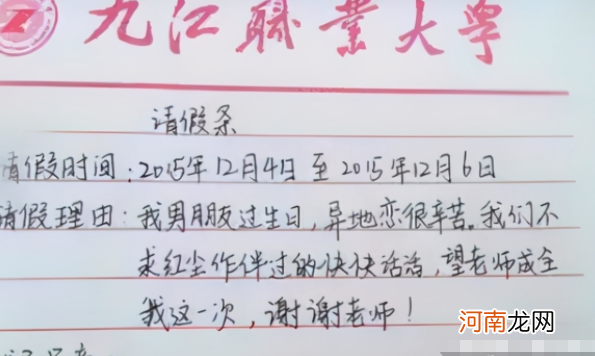 九江职业大学
请假条
请假时间:2015年12月4日至2015年12月6日
请假理由:我男朋友过生日,异地恋很辛苦。我们不
求红尘作伴过的快快活活,望老师成全
我这一次,谢谢老师!
河南龙网